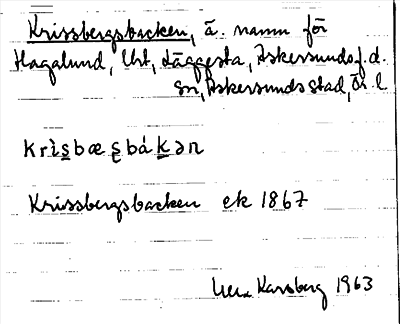 Krissbergsbacken, ä. namn för
Hagalund, Urt, Läggesta, Askersunds f.d.
sn, Askersunds stad, Ör. l
krìs̲bæs̨bák̲ən
Krissbergsbacken ek 1867
Karsberg 1963